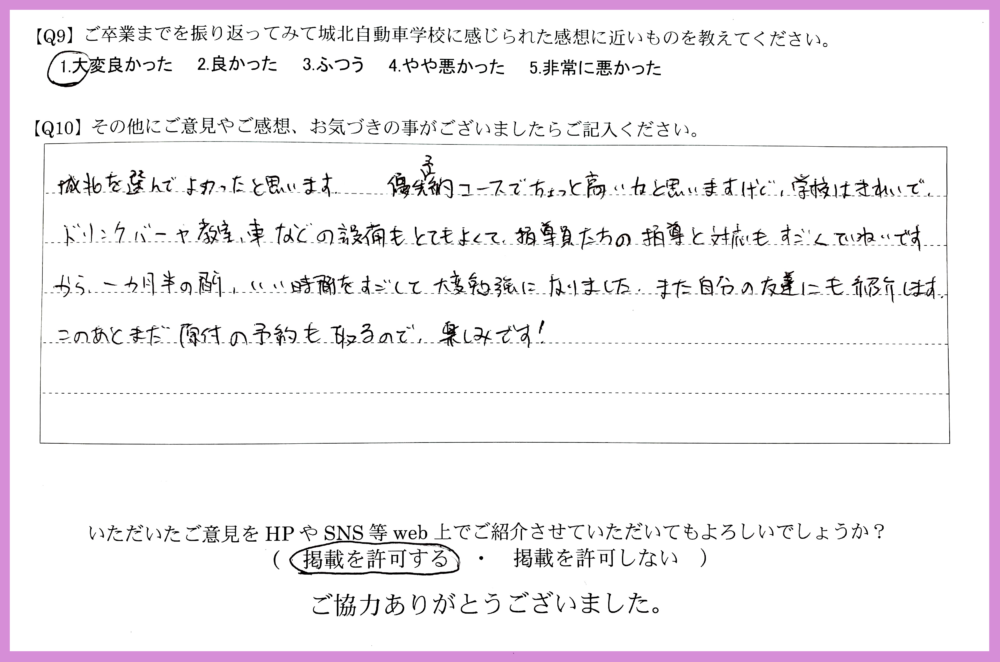 【Q9】ご卒業までを振り返ってみて城北自動車学校に感じられた感想に近いものを教えてください。
1.大変良かった 2.良かった 3.ふつう 4.やや悪かった 5.非常に悪かった
【Q10】その他にご意見やご感想、お気づきの事がございましたらご記入ください。
城北を選んでよかったと思います 優先予約コースでちょっと高いカと思いますけど、学校はきれいで、
ドリンクバーや教室、車などの設備もとてもよくて、指導員たちの指導と対応もすごくていねいです
から、一カ月半の間、いい時間をすごして大変勉強になりました。また自分の友達にも紹介します。
このあとまだ原付の予約も取るので、楽しみです!
いただいたご意見をHPやSNS等web上でご紹介させていただいてもよろしいでしょうか?
( 掲載を許可する ・ 掲載を許可しない )
ご協力ありがとうございました。